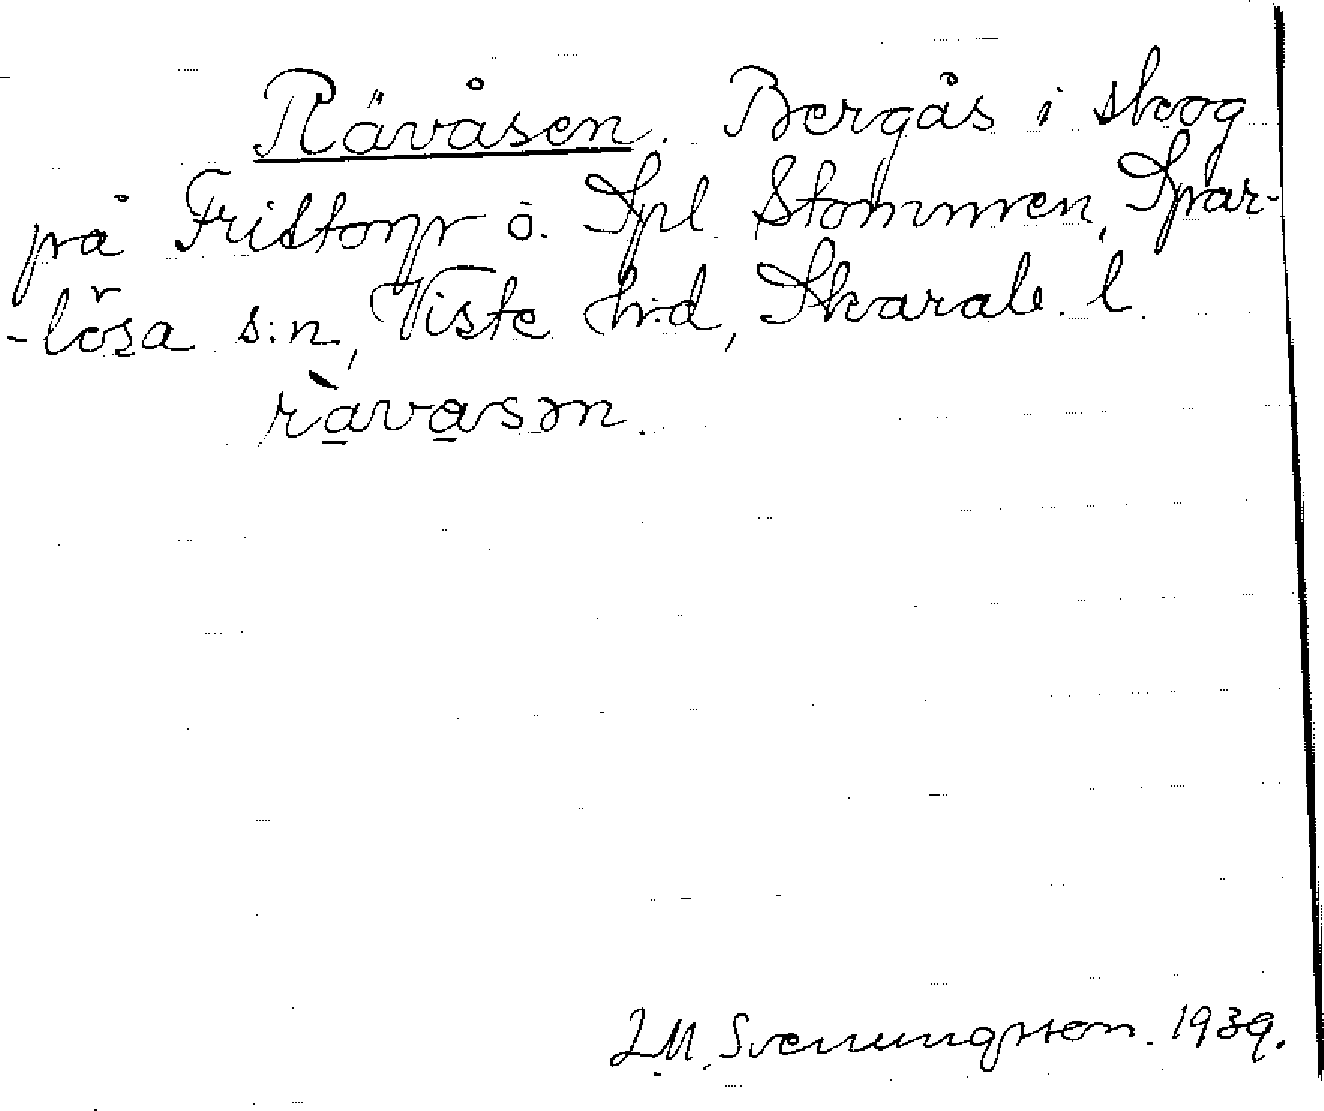 Rävåsen. Bergås i skog
på Fristorp o. Spl Stommen, Spar-
-lösa s:n, Viste h:d, Skarab. l.
rä̀våsən.
L M. Svenungsson. 1939.